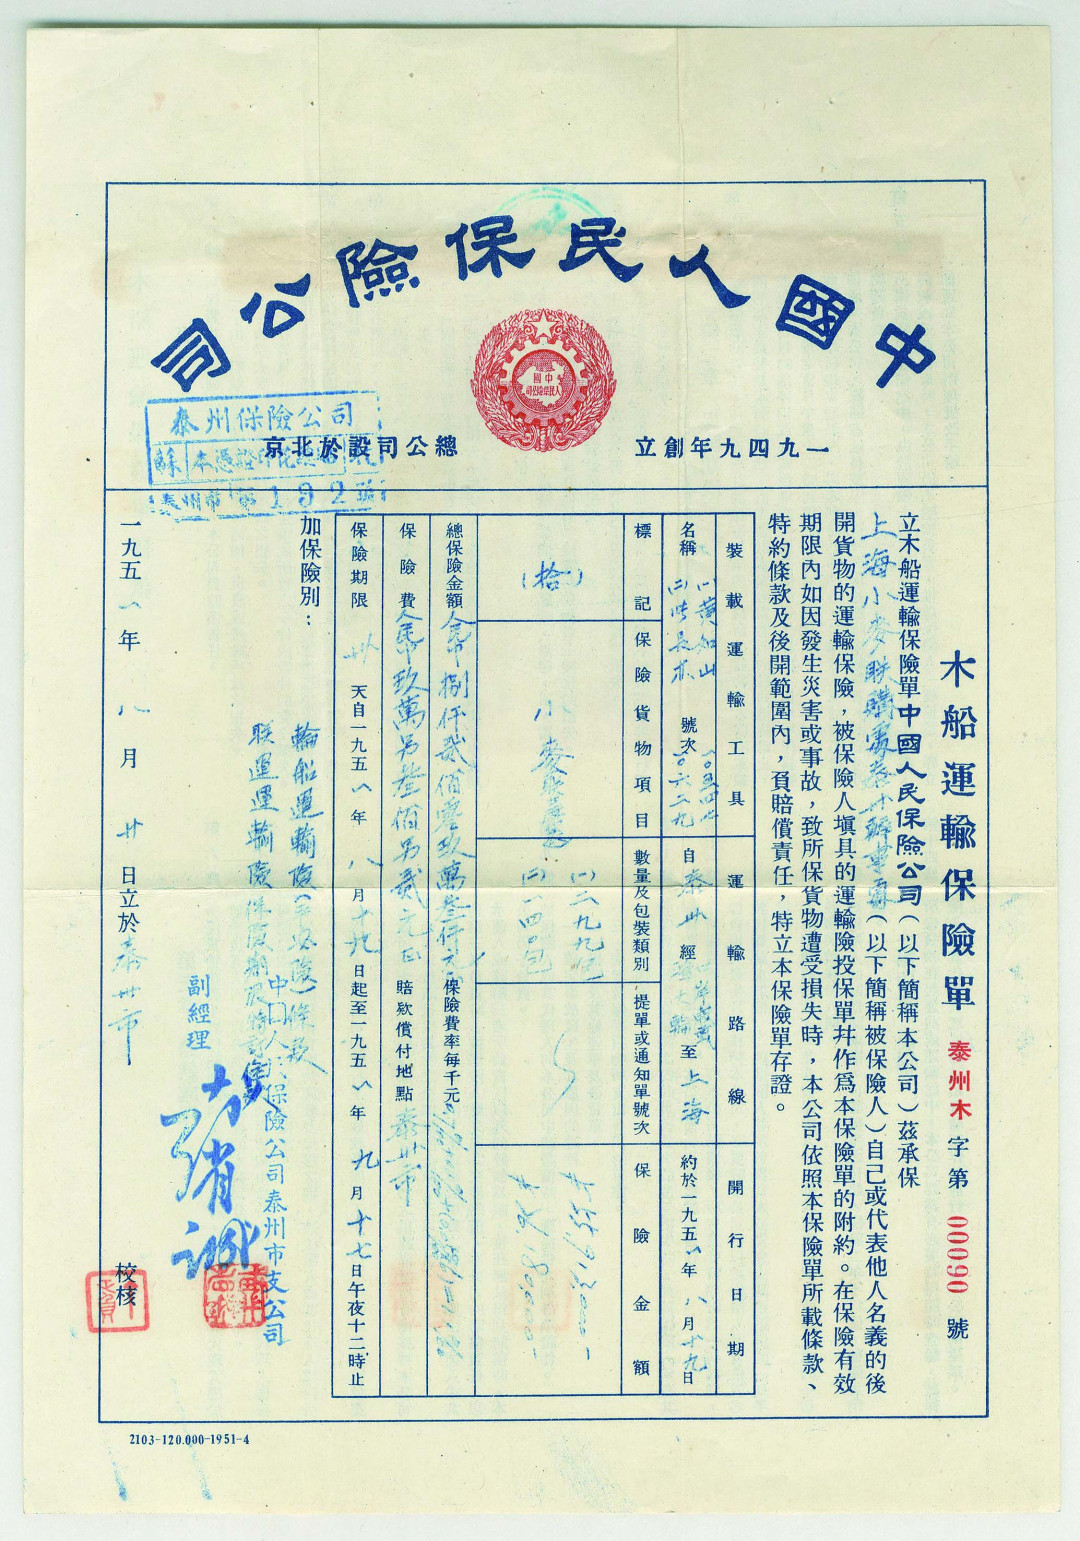 中國人民保險公司
中國人民保險公司
一九四九年創立
總公司設於北京
泰州保險公司
蘇
泰州市
第192號
木船運輸保險單
泰州木字第00090號
立木船運輸保險單中國人民保險公司(以下簡稱本公司)茲承保
上海小麥联購處泰州辦事處(以下簡稱被保險人)自己或代表他人名義的後
開貨物的運輸保險,被保險人塡具的運輸險投保單幷作爲本保險單的附約。在保險有效
期限內如因發生災害或事故,致所保貨物遭受損失時,本公司依照本保險單所載條款、
特約條款及後開範圍內,負賠償責任,特立本保險單存證。
裝載運輸工具
運輸路線
開行日期
名稱
(一)黄如山
號次
(二)
〇六二九
自泰州經
至上海
約於一九五一年八月十九日
標記
保險貨物項目
數量及包裝類別
提單或通知單號次
保險金額
(拾)
小麥
(一)二九九包
(二)一四〇包
總保險金額人民幣捌仟貳佰零玖萬叁仟元
保險費率每千元
保險費人民幣玖萬另叁佰另貳元正
賠欵償付地點泰州市
保險期限卅天自一九五一年八月十九日起至一九五一年九月十七日午夜十二時止
加保險別:
輪船運輸險(平安險)條款
联運運輸險保險期限特約
中國人民保險公司泰州市支公司
副經理
一九五一年八月廿日立於泰州市
校核
2103-120.000-1951-4